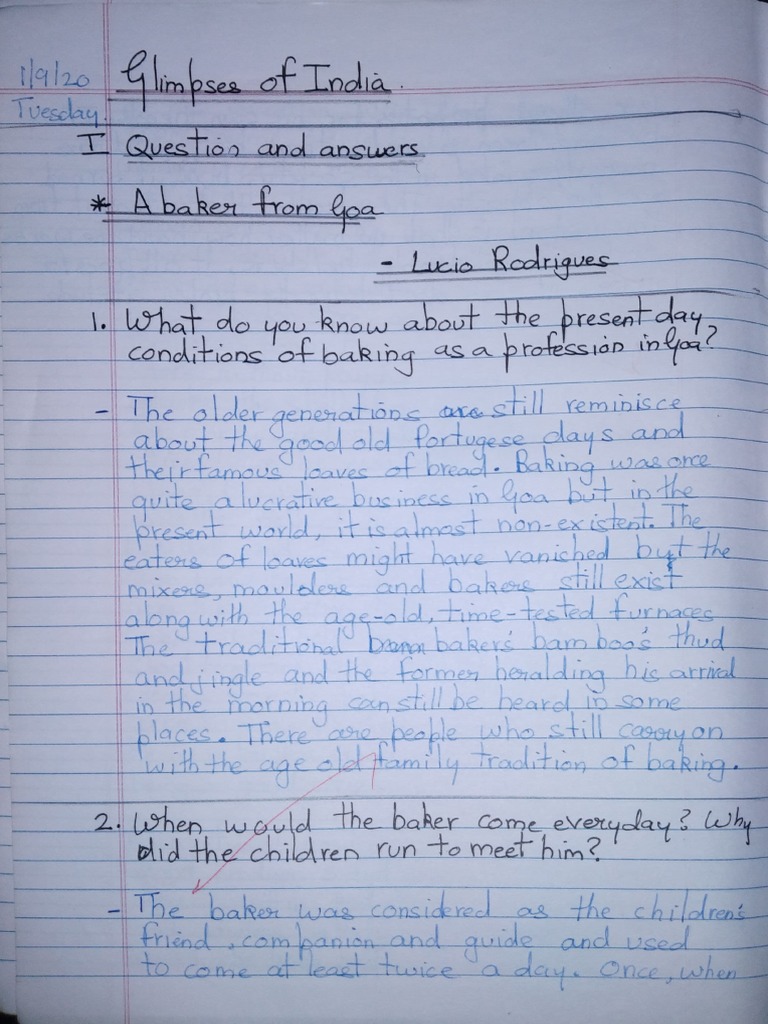 1/9/20 Glimpses of India.
Tuesday.
I Question and answers
* A baker from Goa
- Lucio Rodrigues
1. What do you know about the present day
conditions of baking as a profession in Goa?
- The older generations are still reminisce
about the good old Portugese days and
their famous loaves of bread. Baking was once
quite a lucrative business in Goa but in the
present world, it is almost non-existent. The
eaters of loaves might have vanished but the
mixers, moulders and bakers still exist
along with the age-old, time-tested furnaces
The traditional baker's bamboo's thud
and jingle and the former heralding his arrival
in the morning can still be heard in some
places. There are people who still carry on
with the age old family tradition of baking.
2. When would the baker come everyday? Why
did the children run to meet him?
- The baker was considered as the children's
friend, companion and guide and used
to come at least twice a day. Once, when